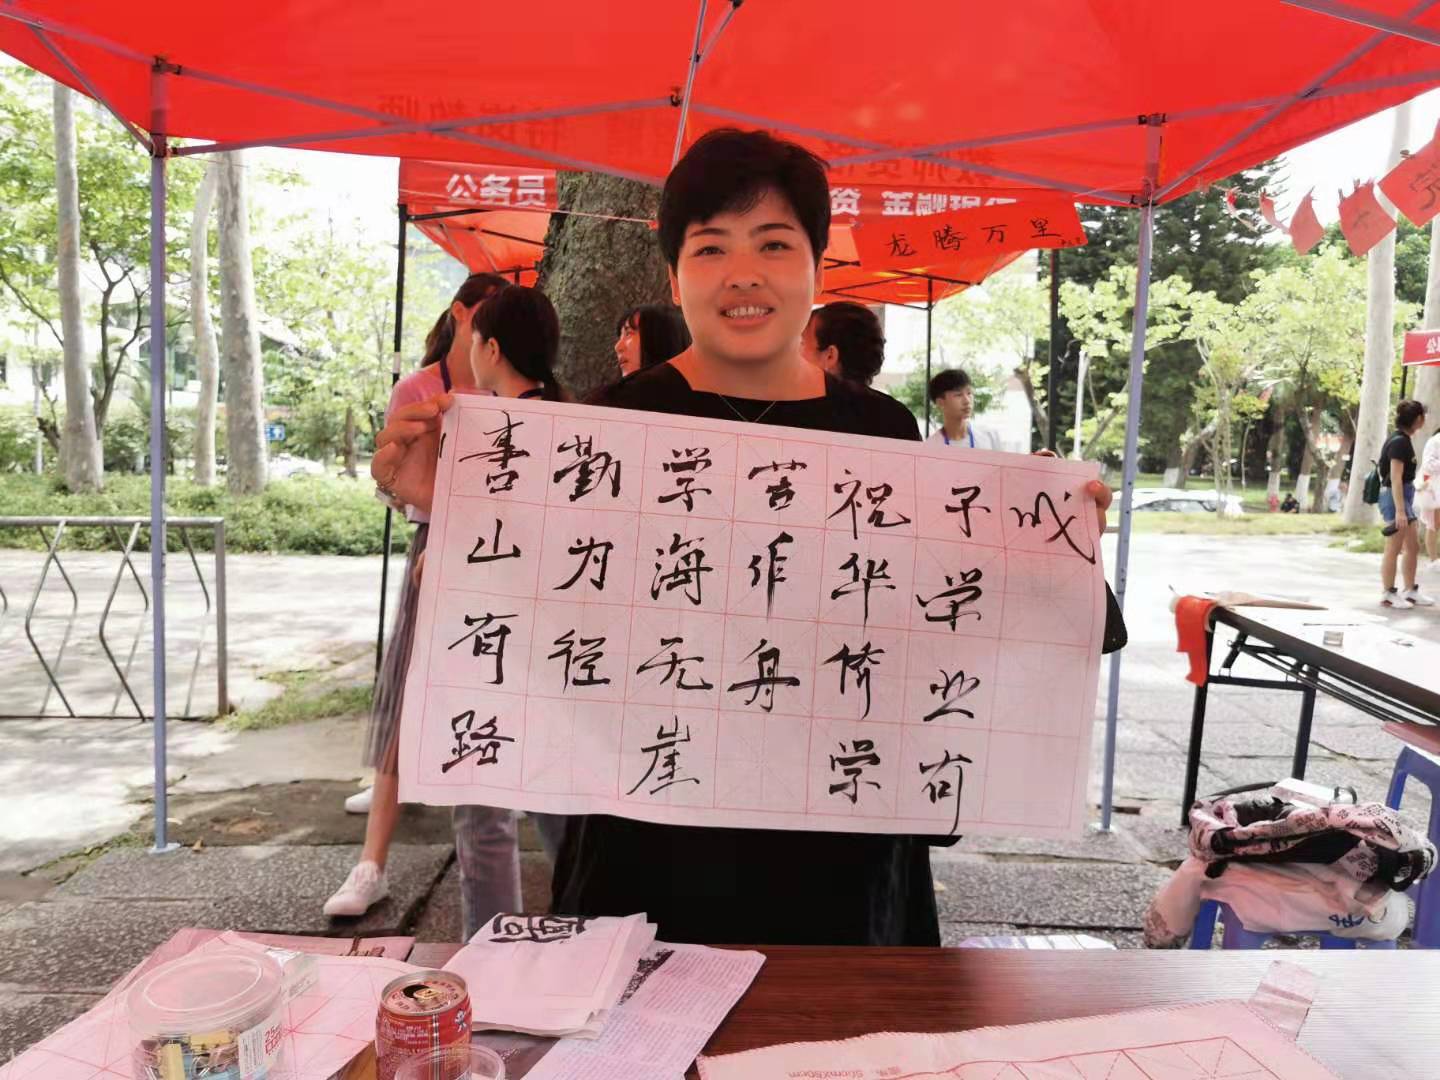 公务员
资 金融银行
龙腾万里
書山有路
勤为径
学海无崖
苦作舟
祝华侨学
子学业有
成
50cmX80cm